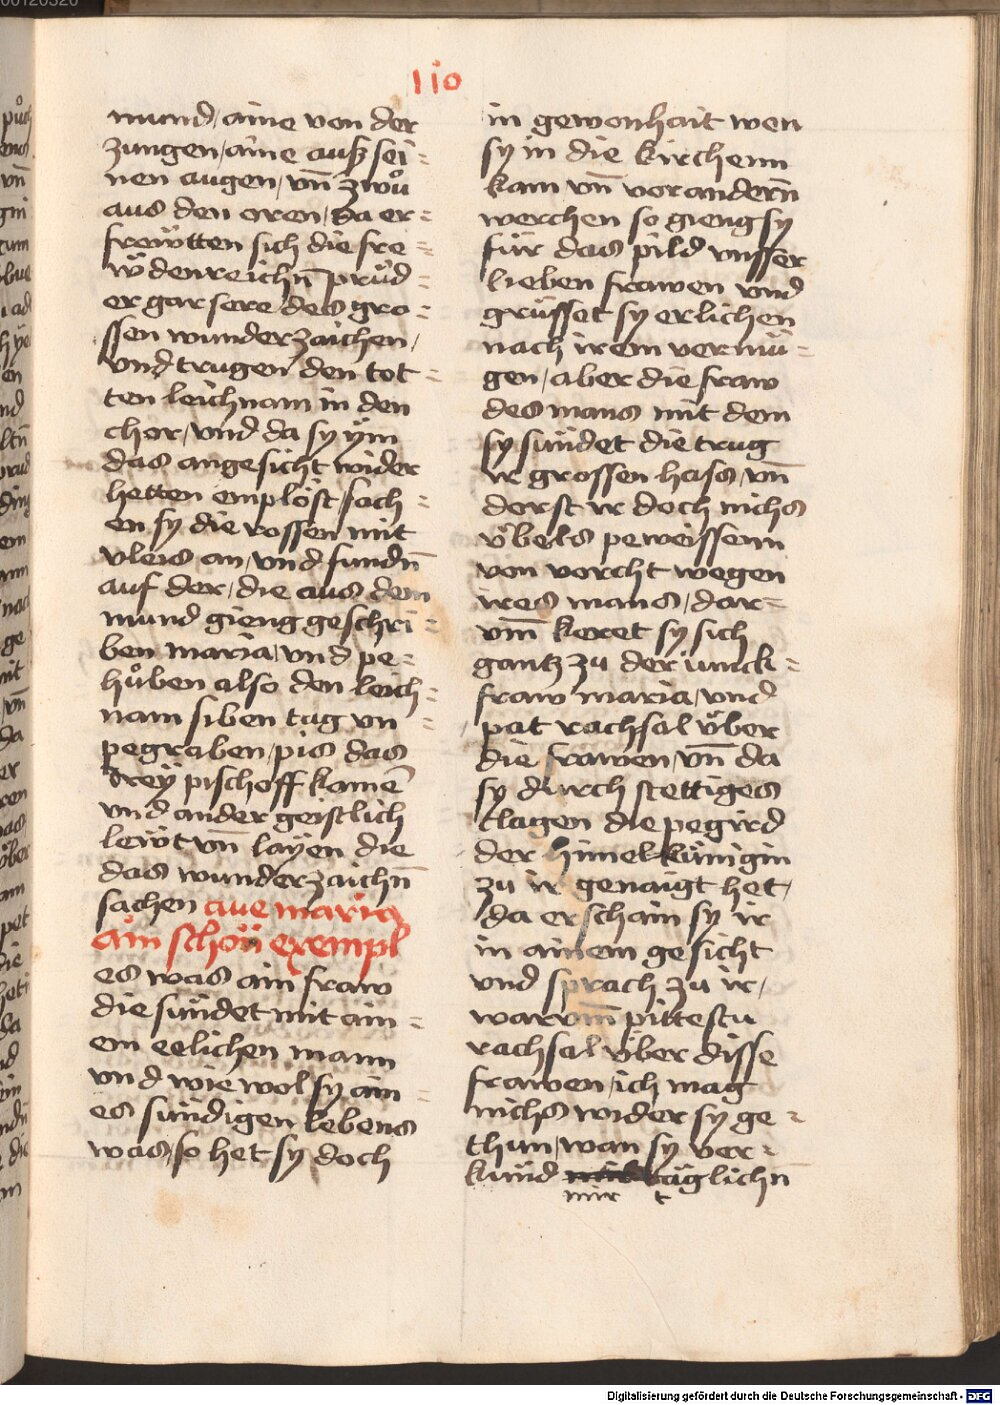 110
mund, aine von der
zungen, aine auß sei=
nen augen, vn̄ zwů
aus den oren, da er=
frewͤtten sich die fre=
wͤdenreichn̄ prüd=
er gar sere des gro=
ssen wunderzaichen,
vnd trugen den tot=
ten leichnam in den
chor, vnd da sy ÿm
das angesicht wider
hetten emplöst sach=
en sy die rossen mit
vleis an, vnd fundn̄
auf der, die aus dem
mund gieng geschri=
ben maria, vnd pe=
hůben also den leich=
nam siben tag vn=
pegraben, pis das
dreÿ pischoff kamen̄
vnd ander geistlich
lewͤt vn̄ layen die
das wunderzaichn̄
sachen aue maria
ain schön exempl
es was ain fraw
die sündet mit ain=
em eelichen mann
vnd wie wol sy ain=
es sündigen lebens
was, so het sy doch
in gewonhait wen
sy in die kirchenn
kam vn̄ vor andern̄
werchen so gieng sy
für das pild vnsser
lieben frawen vnd
grüsset sy erlichen
nach irem vermü=
gen, aber die fraw
des mans mit dem
sy sündet die trug
ir grossen hass, vn̄
dorst ir doch nichs
übels peweissenn
von vorcht wegen
ires mans, dar=
vm̄ keret sy sich
gantz zu der iunck=
fraw maria, vnd
pat rachsal über
die frawen, vn̄ da
sy durch stettiges
clagen die pegird
der himel künigin
zu ir genaigt het,
da erschain sy ir
in ainem gesicht
vnd sprach zu ir,
warvm̄ pittestu
rachsal über disse
frawen, ich mag
nichs wider sy ge=
thun, wan sy ver=
künd täglichn̄
mir t
Digitalisierung gefördert durch die Deutsche Forschungsgemeinschaft - DFG